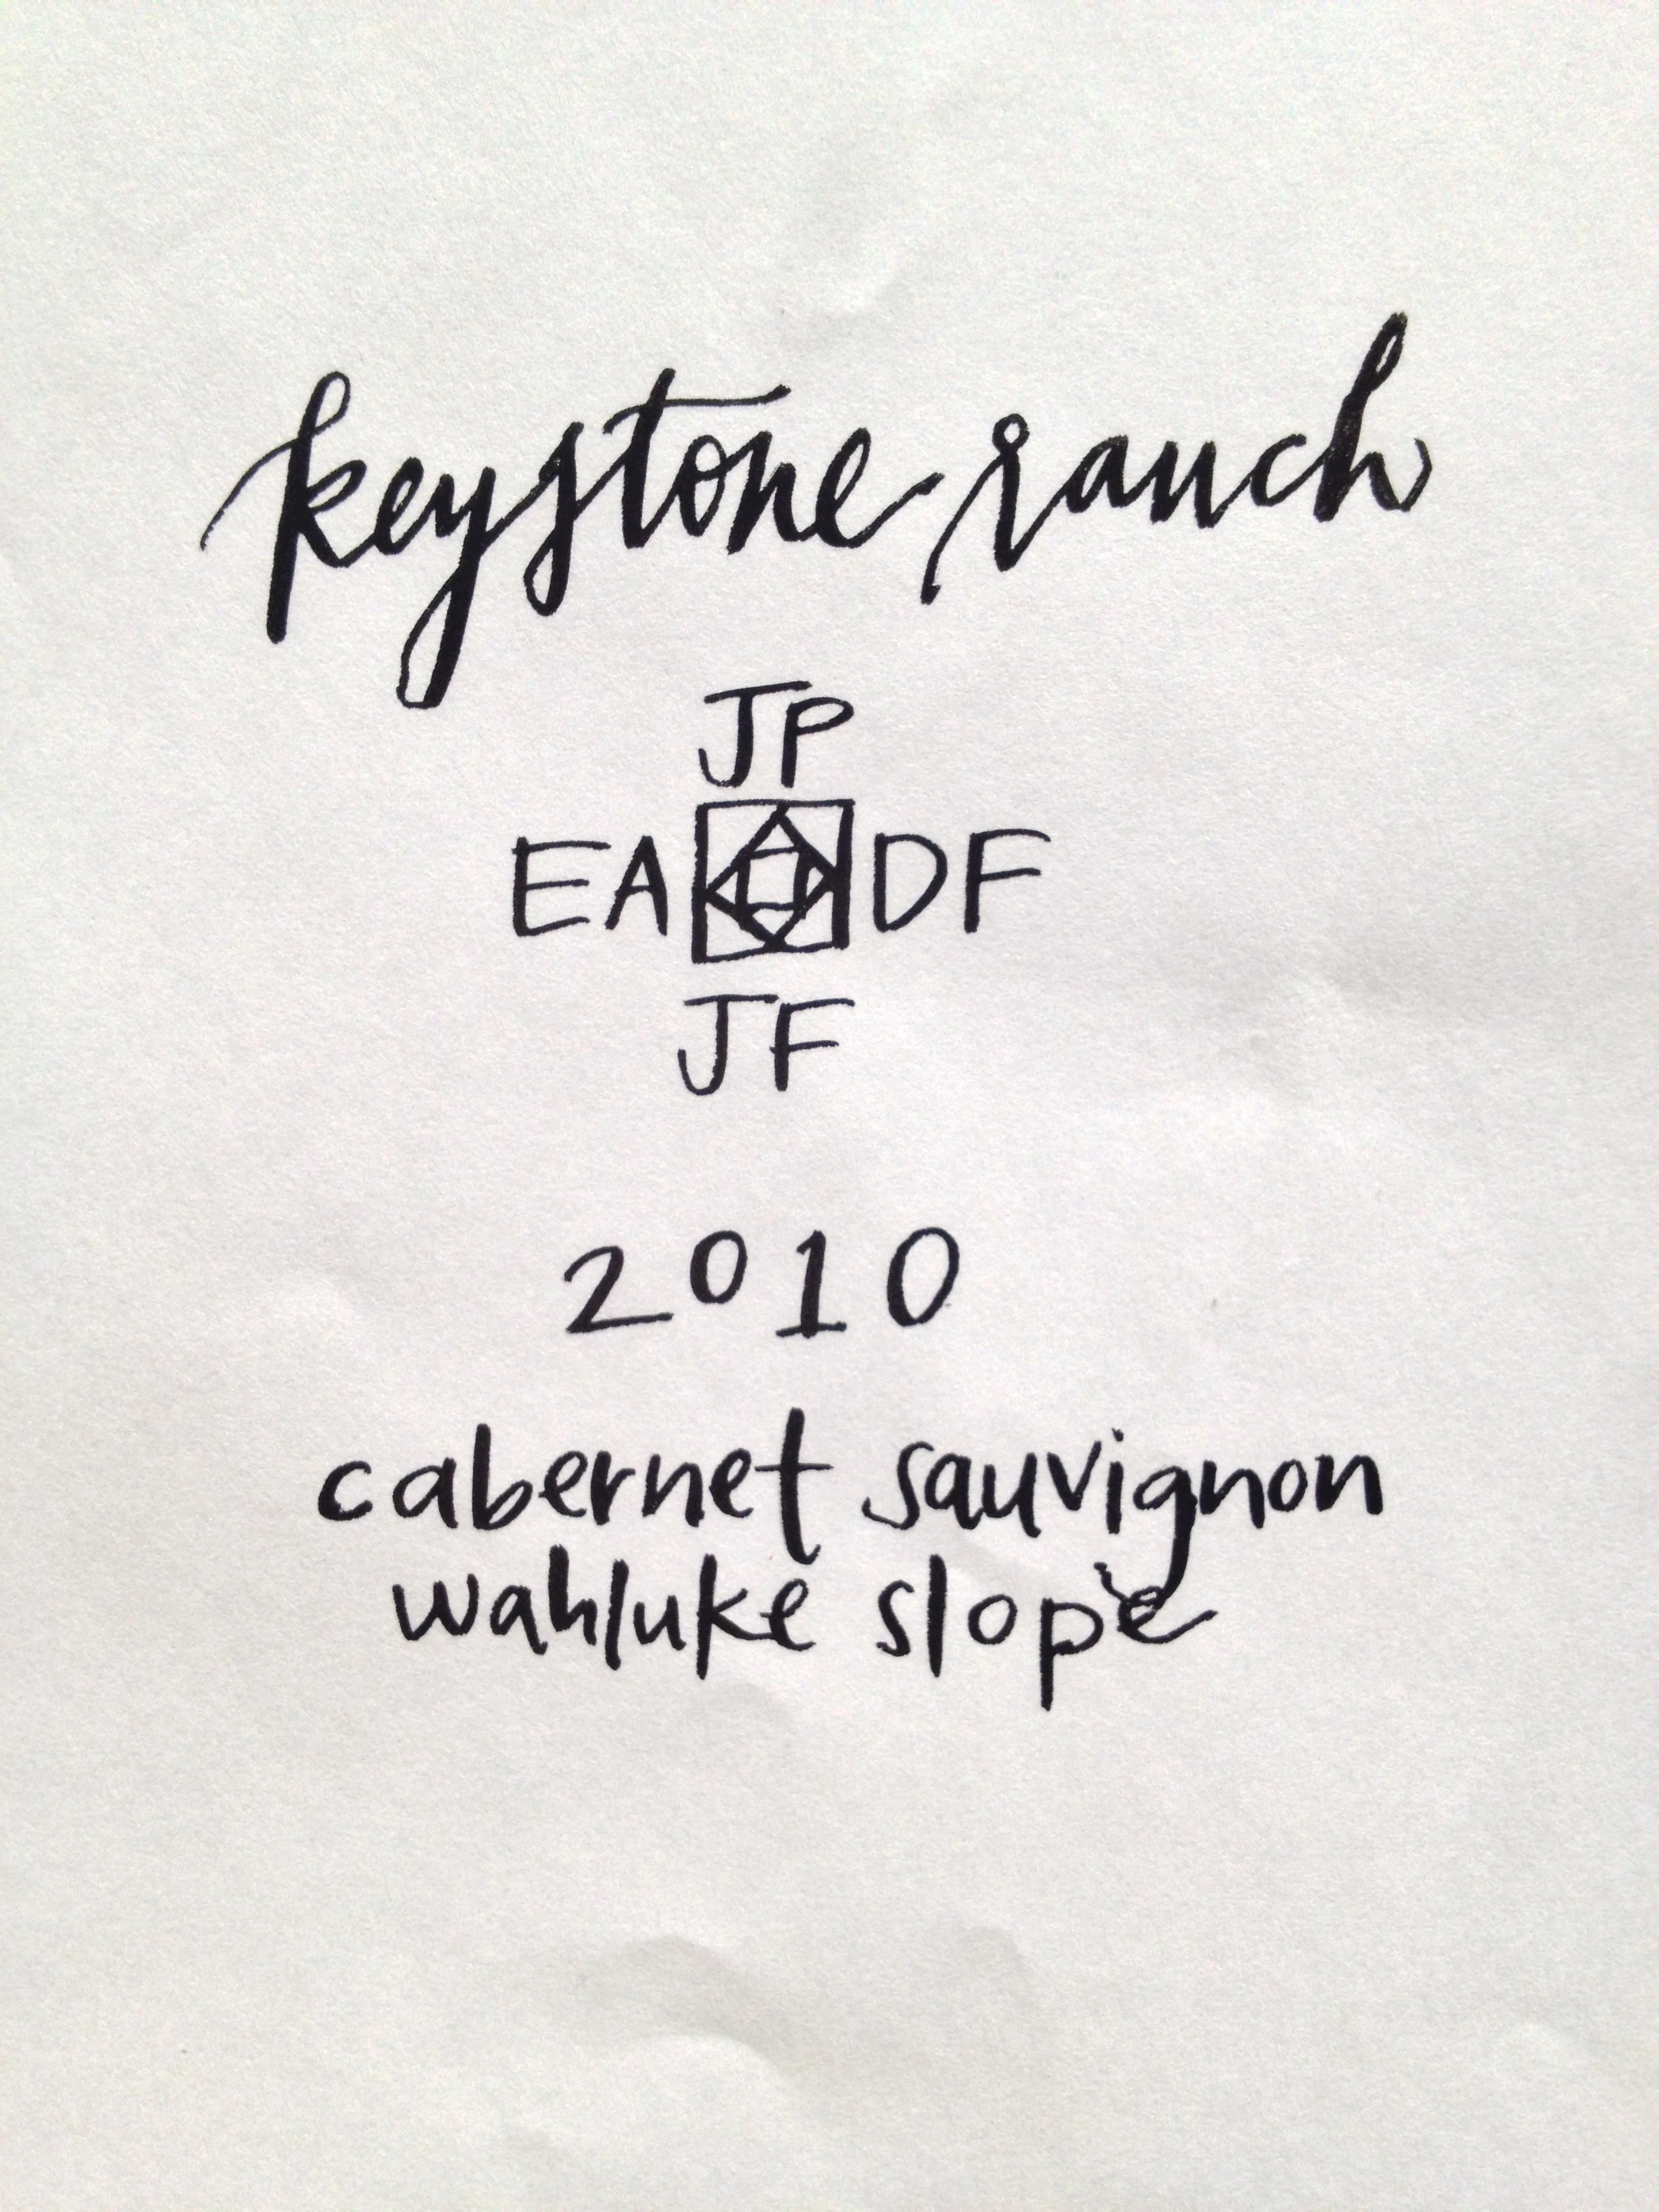 keystone ranch
JP
EA DF
JF
2010
cabernet sauvignon
wahluke slope